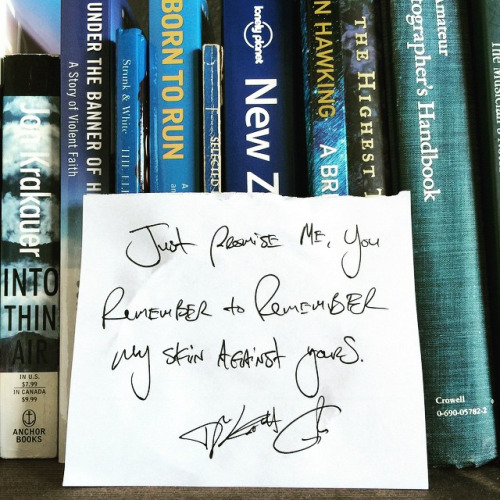 Jon Krakauer
INTO
THIN
AIR
IN U.S.
$7.99
IN CANADA
$9.99
ANCHOR
BOOKS
UNDER THE BANNER OF H
A Story of Violent Faith
Strunk & White THE EL
BORN TO RUN
SELECTED
lonely planet
New Z
N HAWKING A BR
THE HIGHEST T
Amateur
tographer's Handbook
Crowell
0-690-05782-2
Just promise Me, You
Remember to Remember
my skin Against yours.